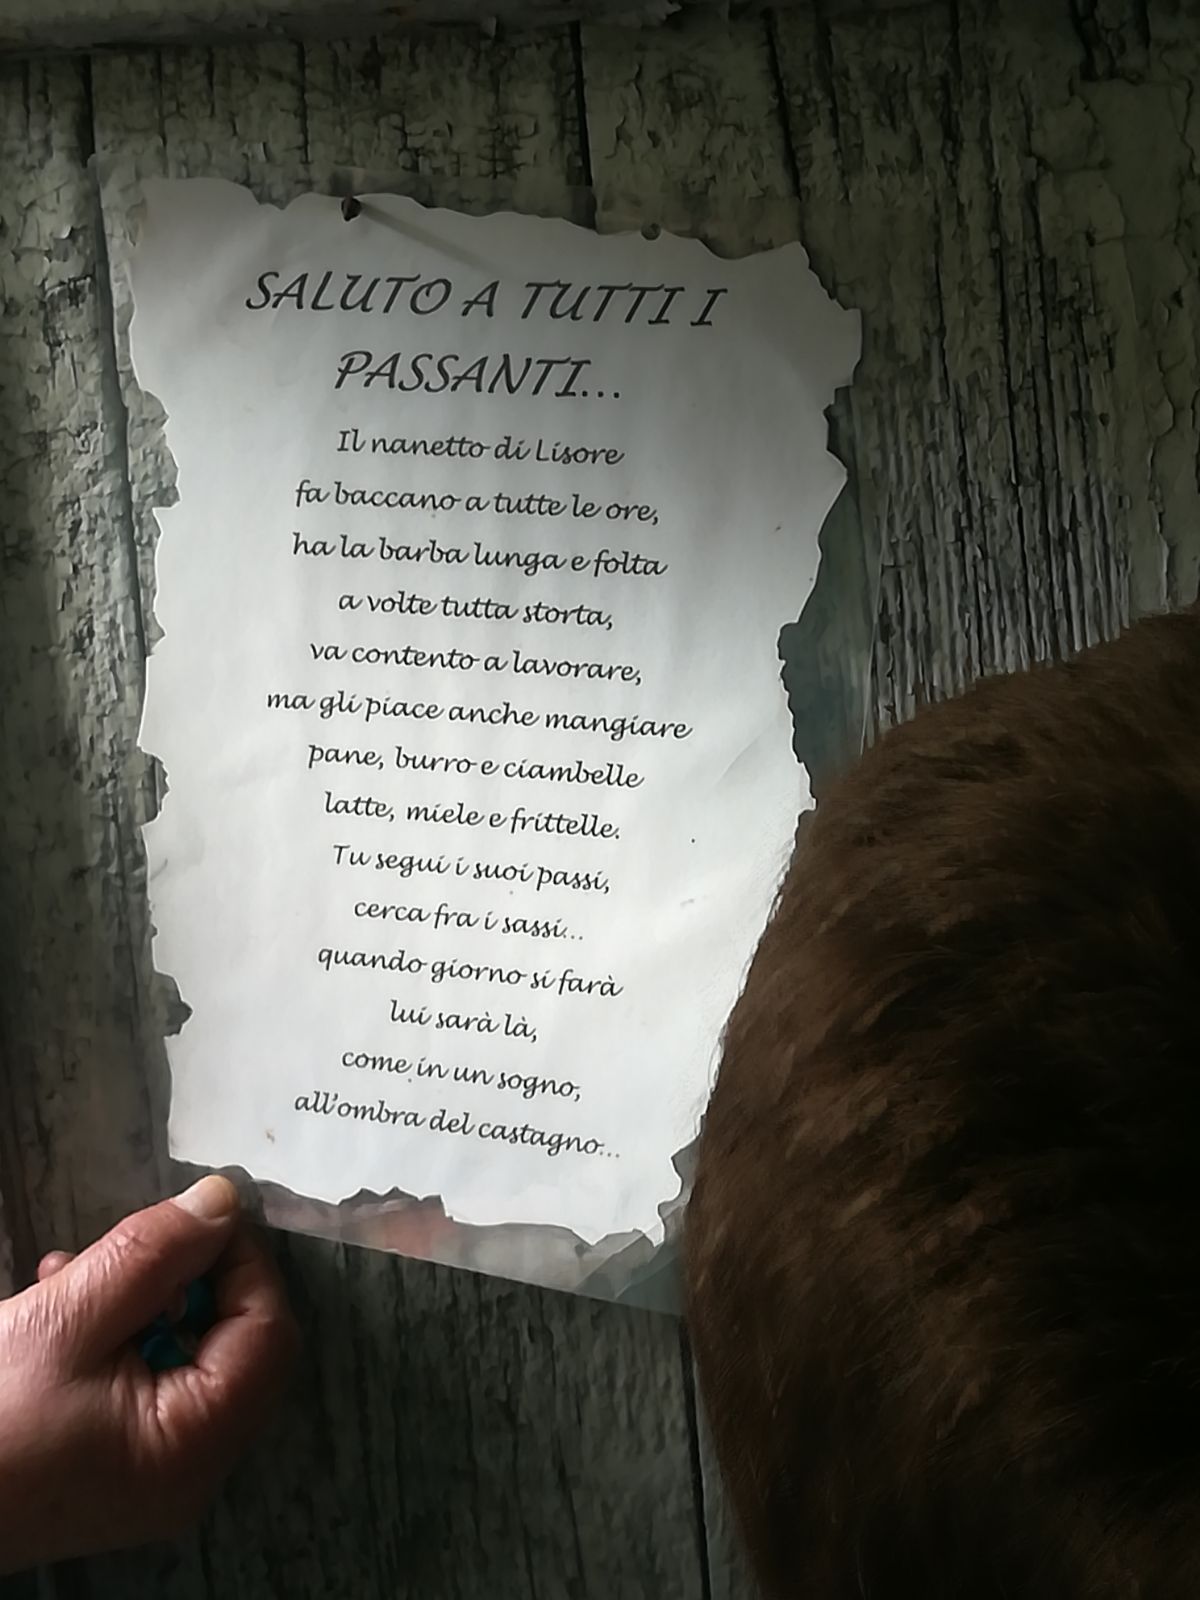 SALUTO A TUTTI I
PASSANTI...
Il nanetto di Lisore
fa baccano a tutte le ore,
ha la barba lunga e folta
a volte tutta storta,
va contento a lavorare,
ma gli piace anche mangiare
pane, burro e ciambelle
latte, miele e frittelle.
Tu segui i suoi passi,
cerca fra i sassi...
quando giorno si farà
lui sarà là,
come in un sogno,
all'ombra del castagno...